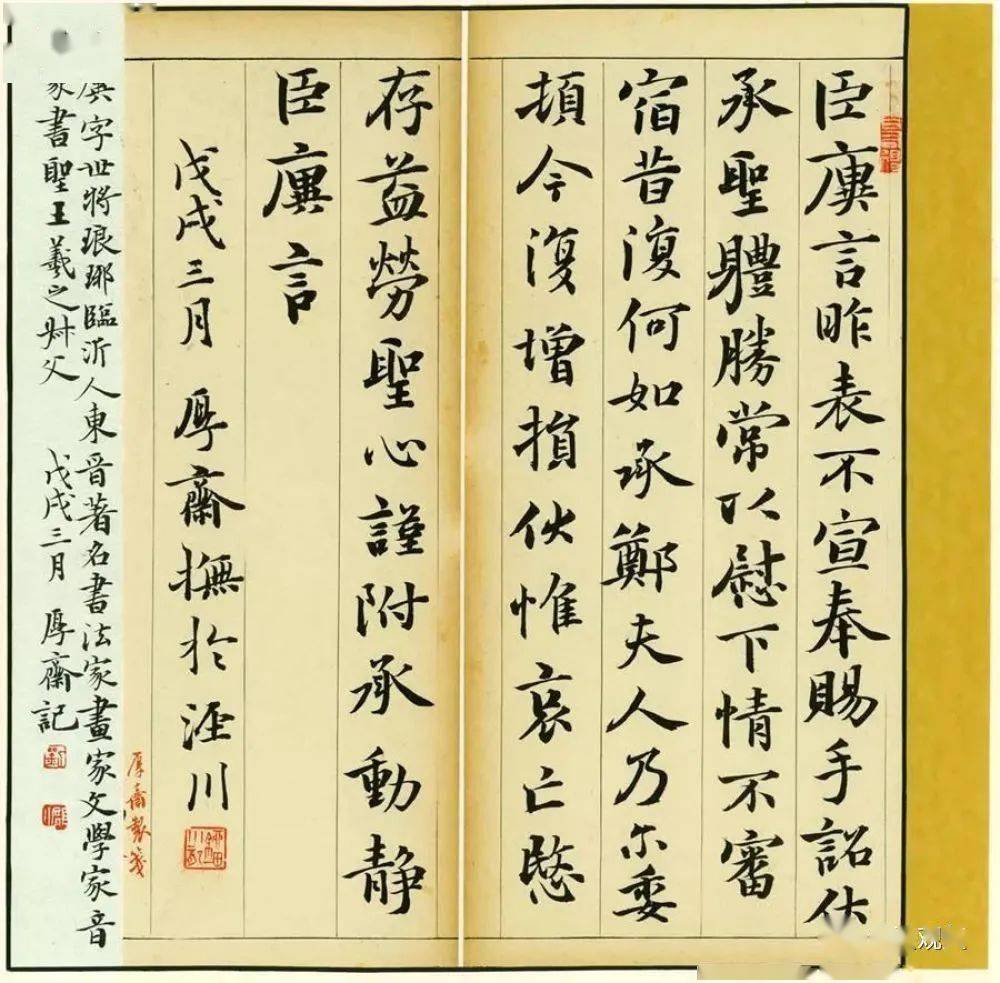 臣廙言昨表不宣奉賜手詔伏
承聖體勝常以慰下情不審
宿昔復何如承鄭夫人乃尒委
頓今復增損伏惟哀亡愍
存益勞聖心謹附承動静
臣廙言
戊戌三月 厚齋撫於涇川
厚齋製箋
廙字世將琅琊臨沂人東晉著名書法家畫家文學家音
家書聖王羲之叔父
戊戌三月 厚齋記
观